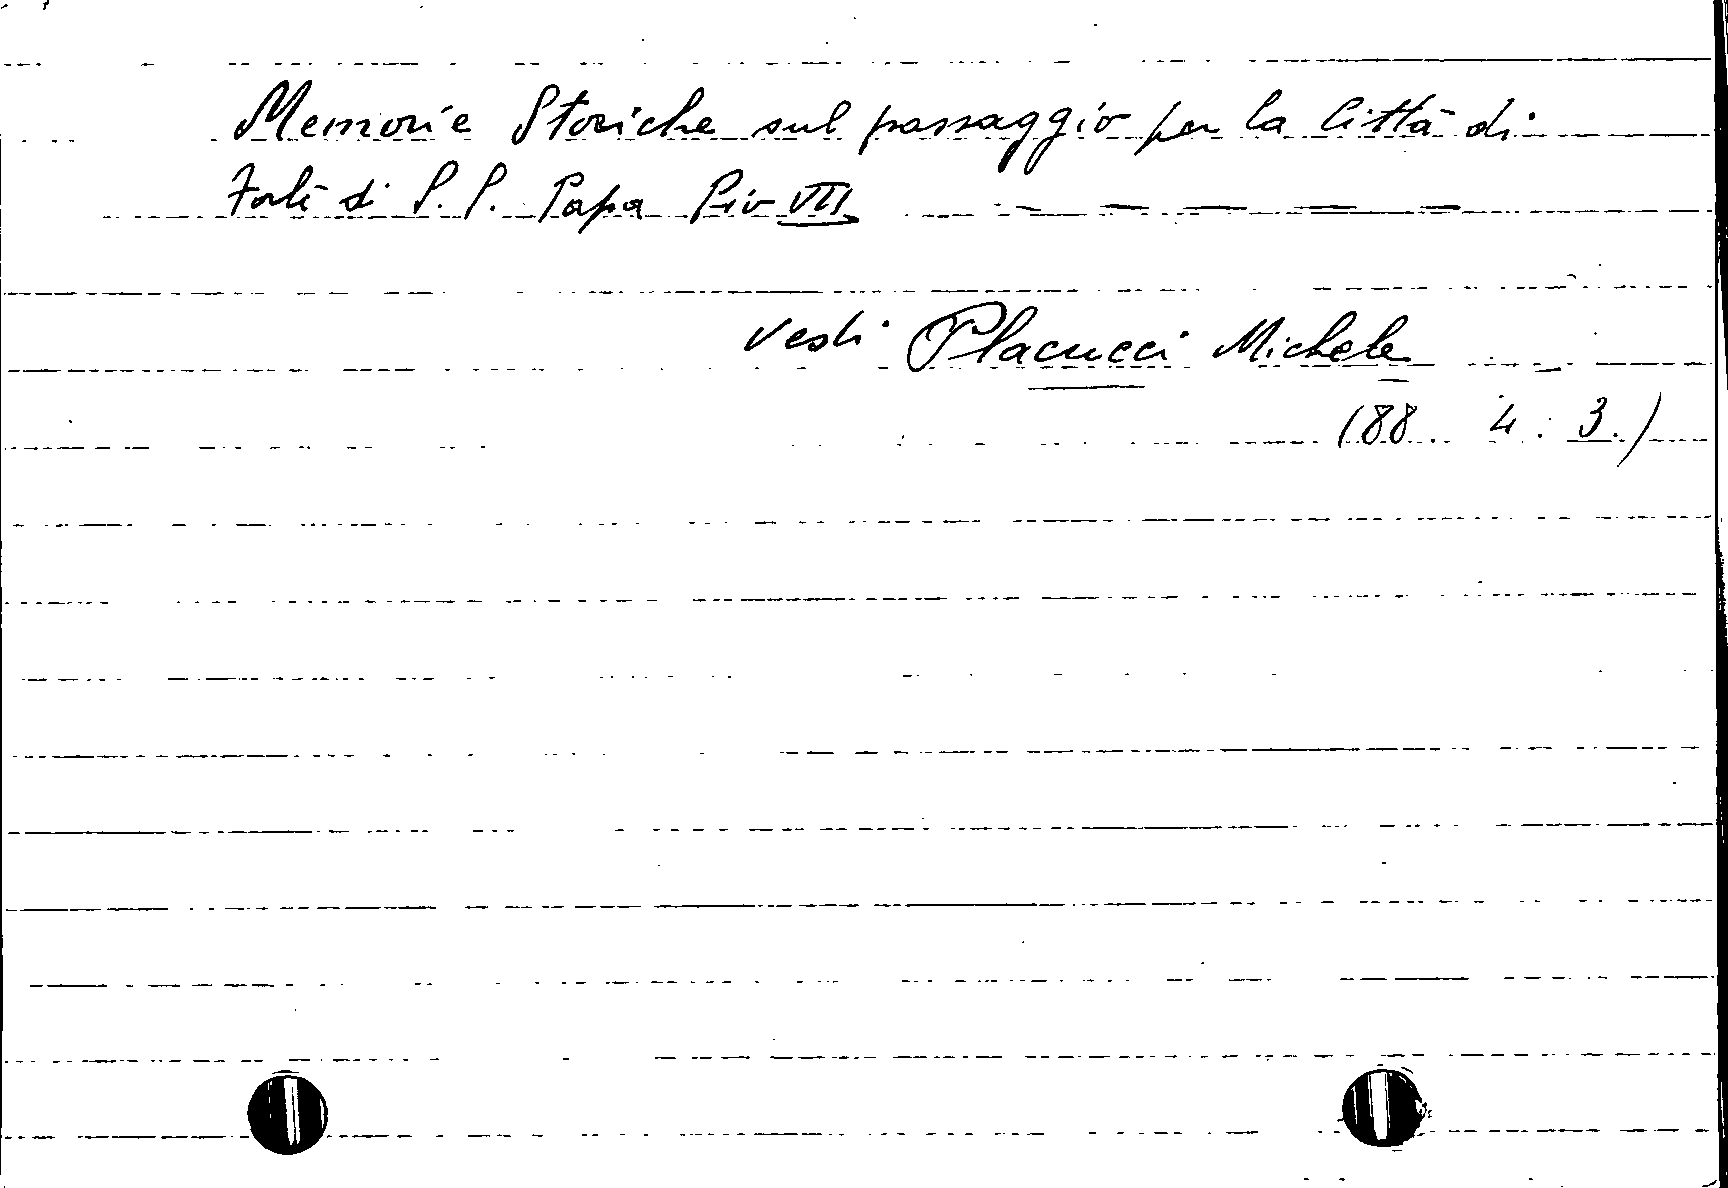 Memorie Storiche sul passaggio per la Città di
Forlì di S. S. Papa Pio VII
vedi Placucci Michele
(88. 4. 3.)